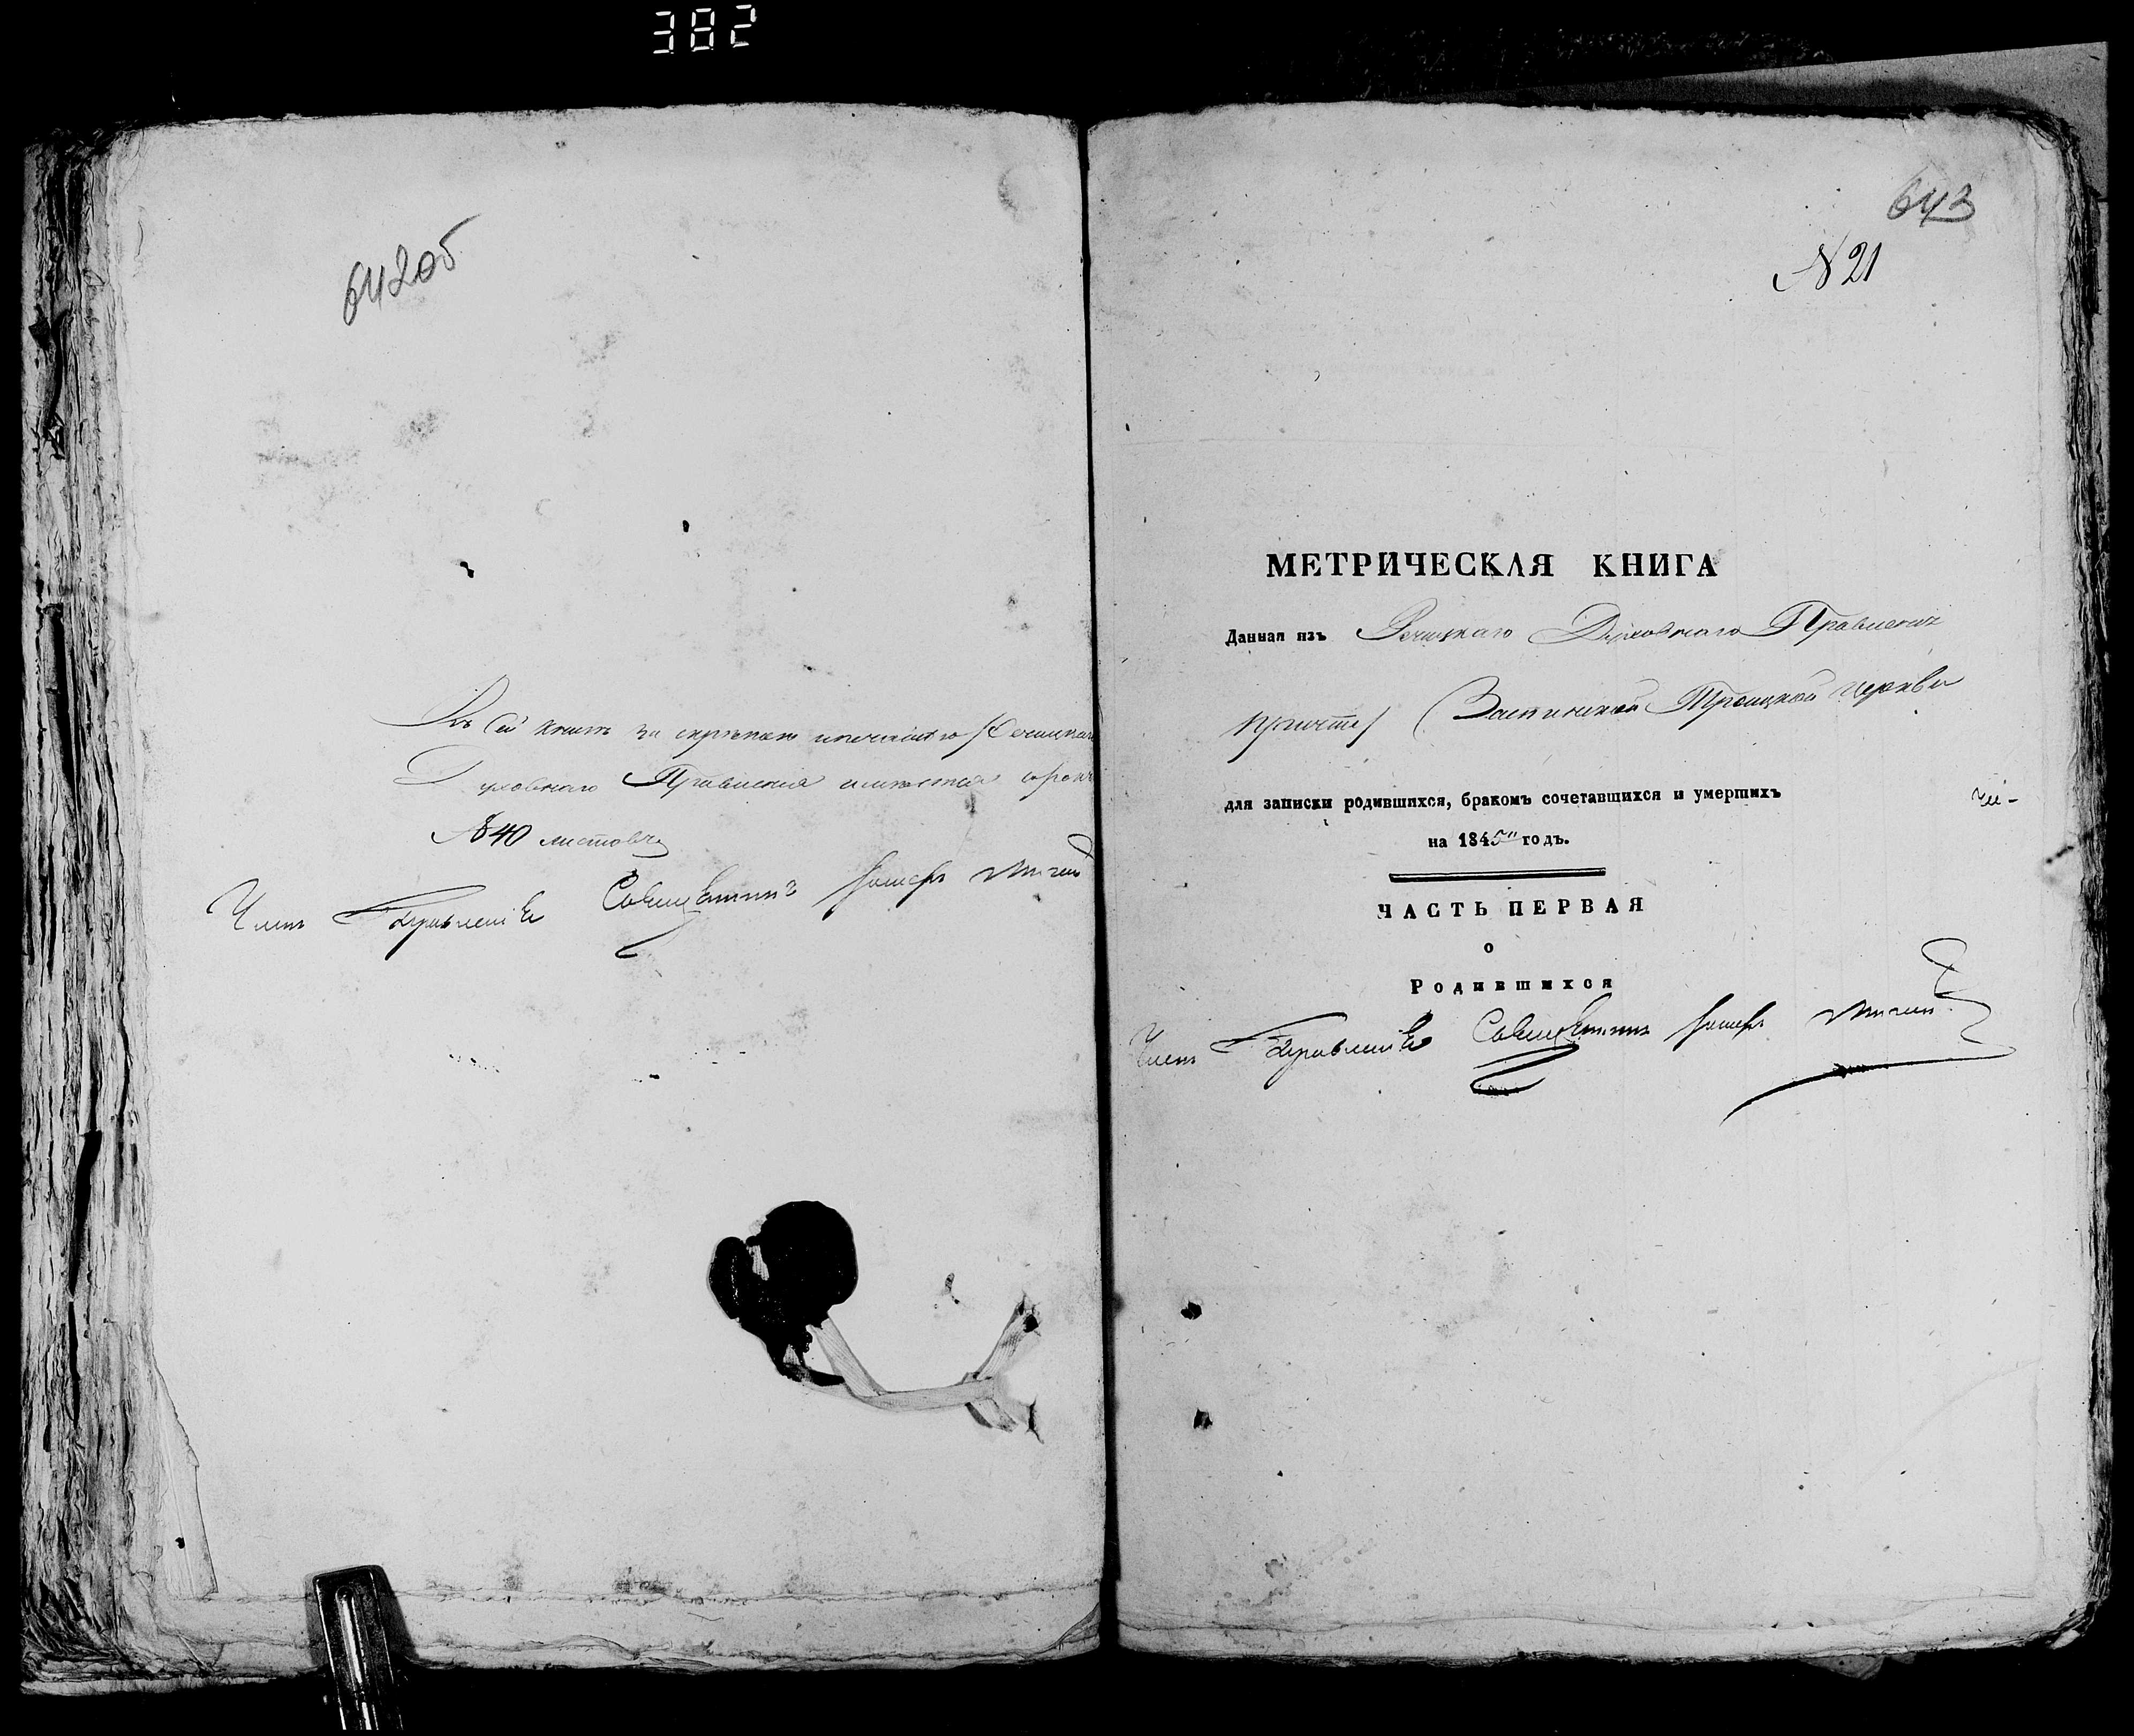 382
642об
Въ сей книгѣ за скрѣпою и печатью Речицкаго
Духовнаго Правленія имѣется
№ 40 листовъ
Членъ Правленія Священникъ
643
№ 21
МЕТРИЧЕСКАЯ КНИГА
Данная изъ Речицкаго Духовнаго Правленія
причту Троицкой церкви
для записки родившихся, бракомъ сочетавшихся и умершихъ
на 1845 годъ.
ЧАСТЬ ПЕРВАЯ
о
Родившихся
Членъ Правленія Священникъ